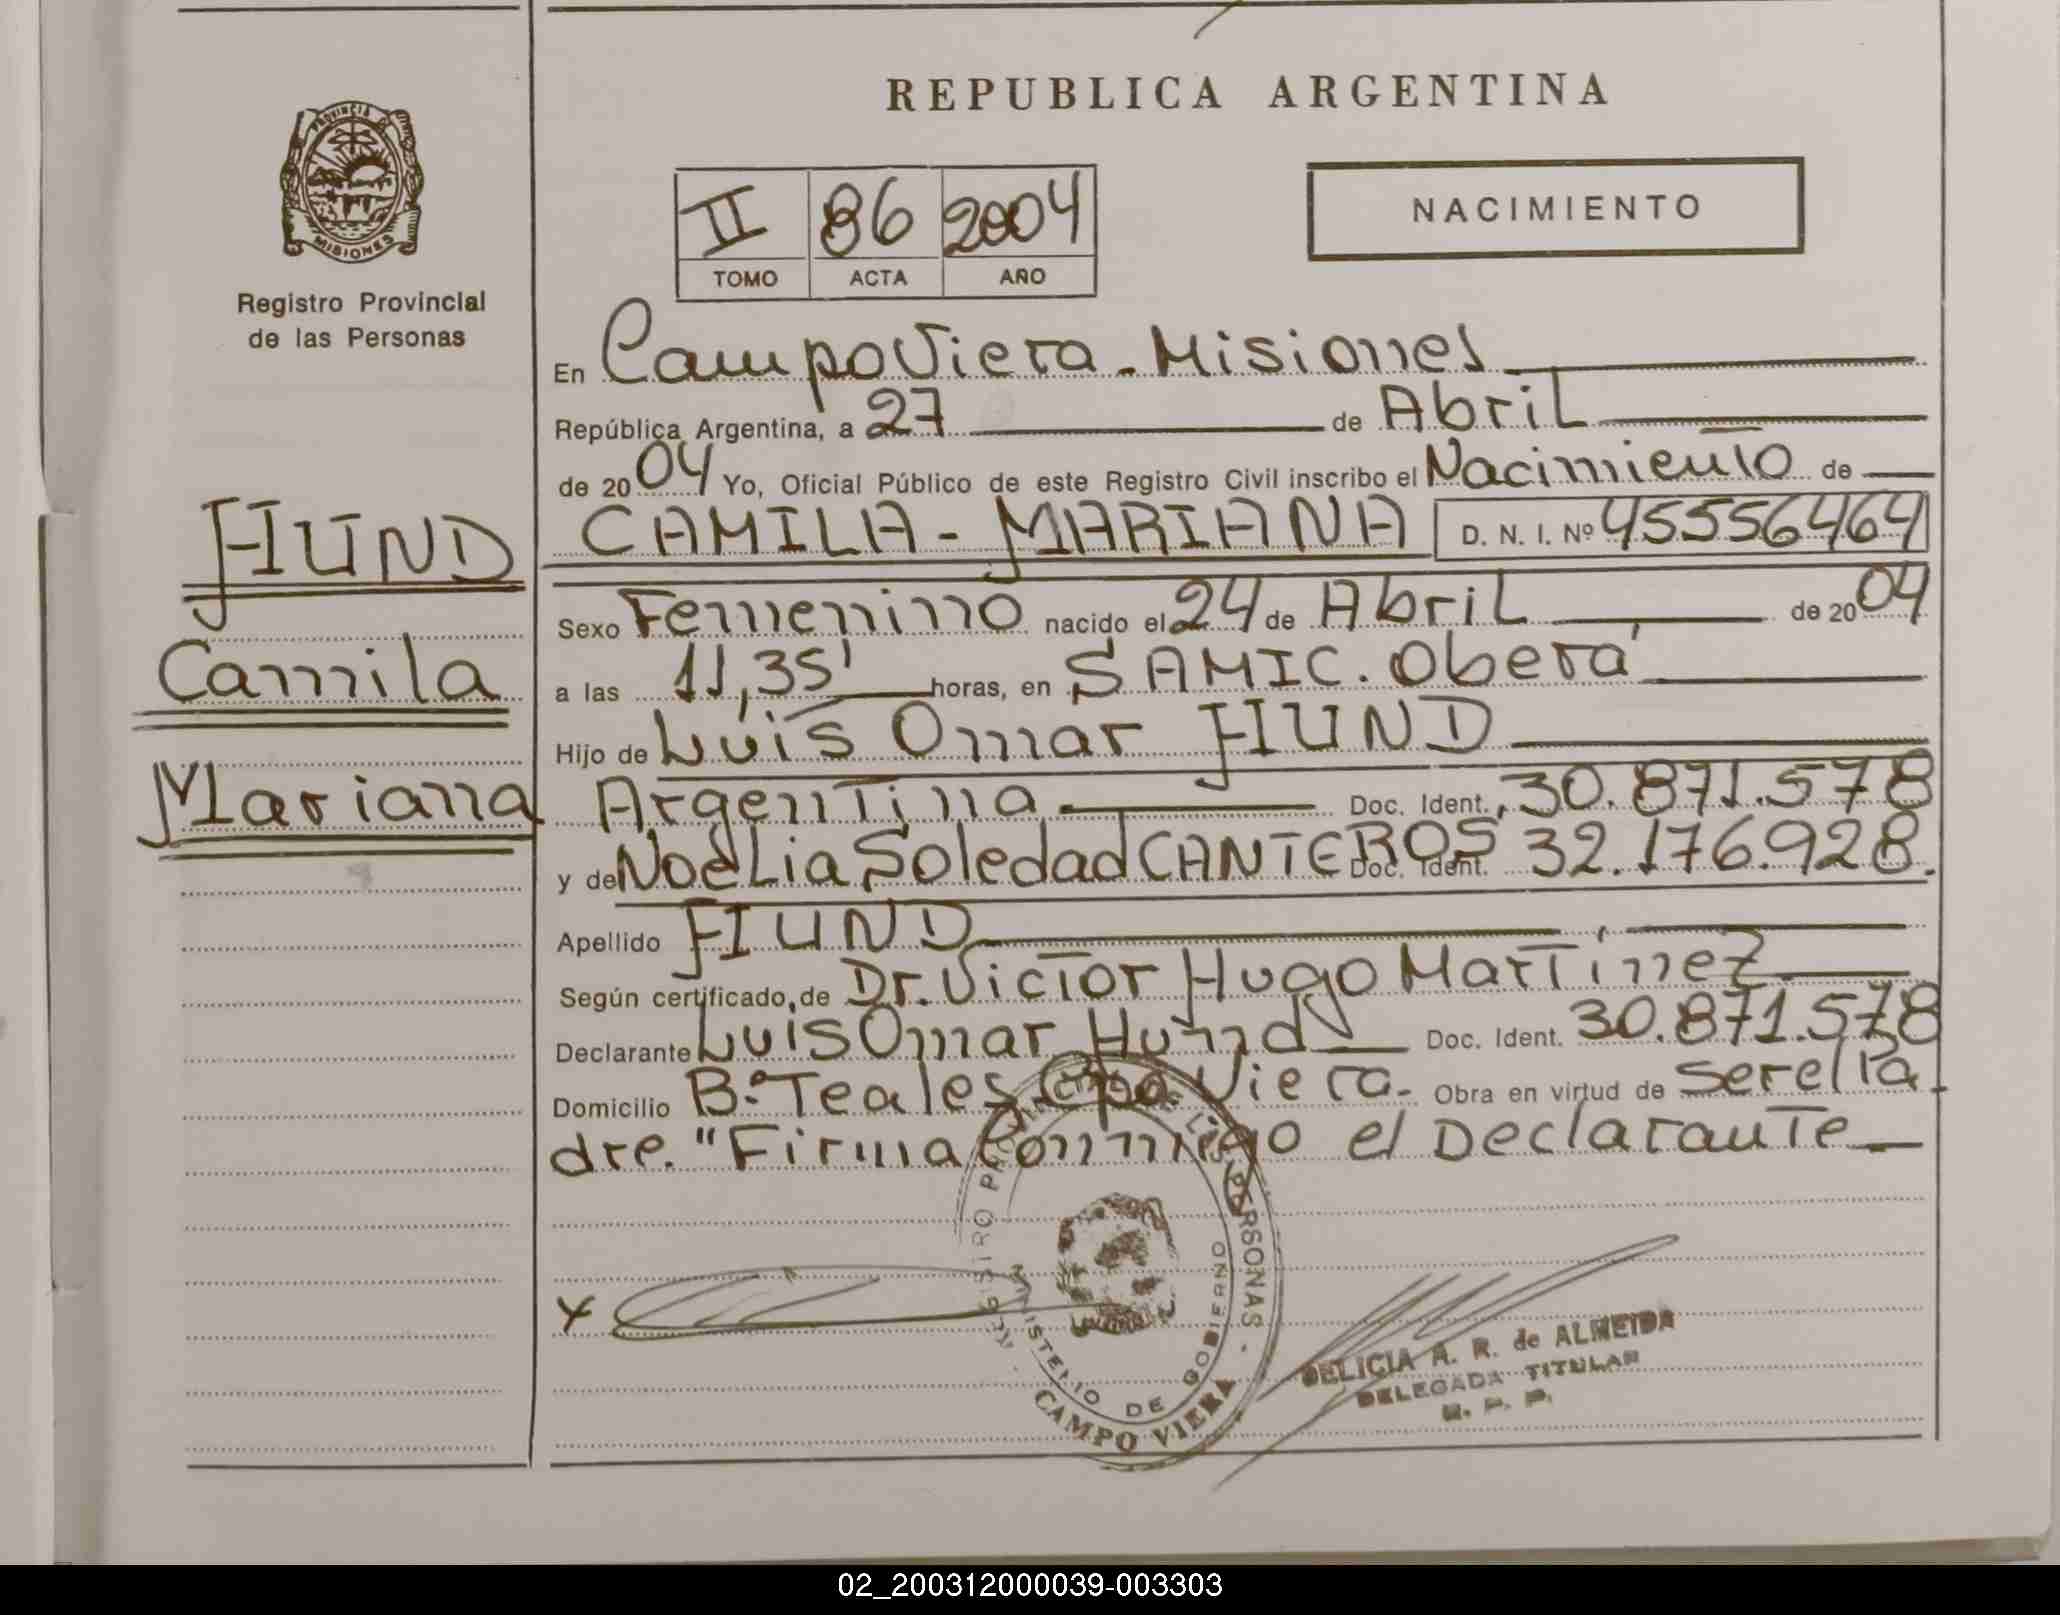 REPUBLICA ARGENTINA
PROVINCIA DE
MISIONES
Registro Provincial
de las Personas
II 86 2004
TOMO ACTA AÑO
NACIMIENTO
En Campo Viera - Misiones
República Argentina, a 27 de Abril
de 2004 Yo, Oficial Público de este Registro Civil inscribo el Nacimiento de
HUND
Camila
Mariana
CAMILA - MARIANA D. N. I. Nº 45556464
Sexo Femenino nacido el 24 de Abril de 2004
a las 11,35' horas, en SAMIC. Oberá
Hijo de Luis Omar HUND
Argentina Doc. Ident. 30.871.578
y de Noelia Soledad CANTEROS Doc. Ident. 32.176.928.
Apellido HUND
Según certificado, de Dr. Victor Hugo Martínez
Declarante Luis Omar Hund Doc. Ident. 30.871.578
Domicilio Bº Teales Cpo Viera. Obra en virtud de ser el Pa
dre. "Firma Conmigo el Declarante
x
REGISTRO PROVINCIAL DE LAS PERSONAS
MINISTERIO DE GOBIERNO
CAMPO VIERA
DELICIA A. R. de ALMEIDA
DELEGADA TITULAR
R. P. P.
02_200312000039-003303